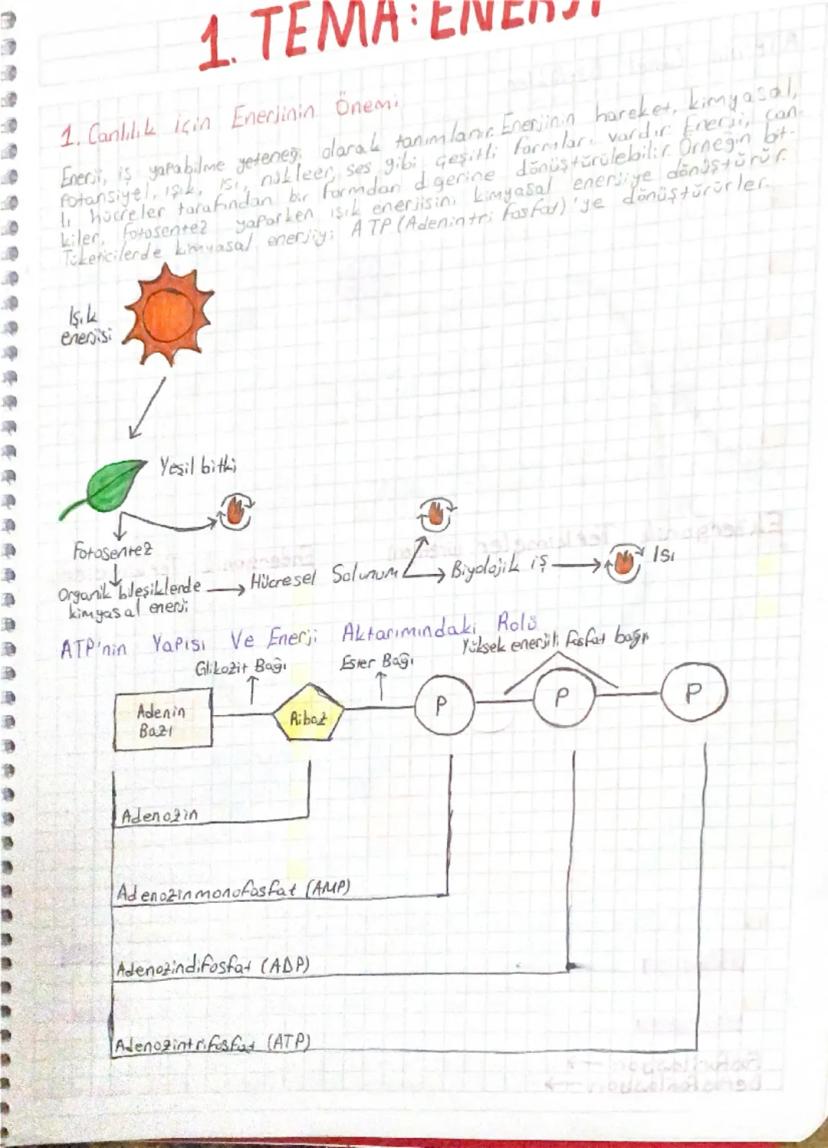 1. TEMA: ENERJİ
1. Canlılık için Enerjinin Önemi
Enerji, iş yapabilme yeteneği olarak tanımlanır. Enerjinin hareket, kimyasal,
potansiyel, ışık, ısı, nükleer, ses gibi çeşitli formları vardır. Enerji, can-
lı hücreler tarafından bir formdan diğerine dönüştürülebilir. Örneğin bit-
kiler, fotosentez yaparken ışık enerjisini kimyasal enerjiye dönüştürür.
Tüketicilerde kimyasal enerjiyi ATP (Adenintri fosfat)'ye dönüştürürler.
Işık
enerjisi
Yeşil bitki
Fotosentez
Organik bileşiklerde
kimyasal enerji
Hücresel Solunum
Biyolojik iş
Isı
ATP'nin Yapısı Ve Enerji Aktarımındaki Rolü
Glikozit Bağı
Ester Bağı
Yüksek enerjili fosfat bağı
Adenin
Bazı
Riboz
P
P
P
Adenozin
Adenozinmonofosfat (AMP)
Adenozindifosfat (ADP)
Adenozintrifosfat (ATP)